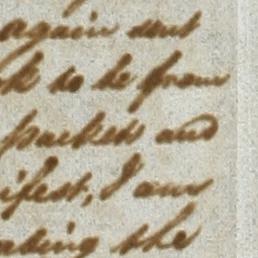 again sent
to be from
packed and
ifest, I am
ating the